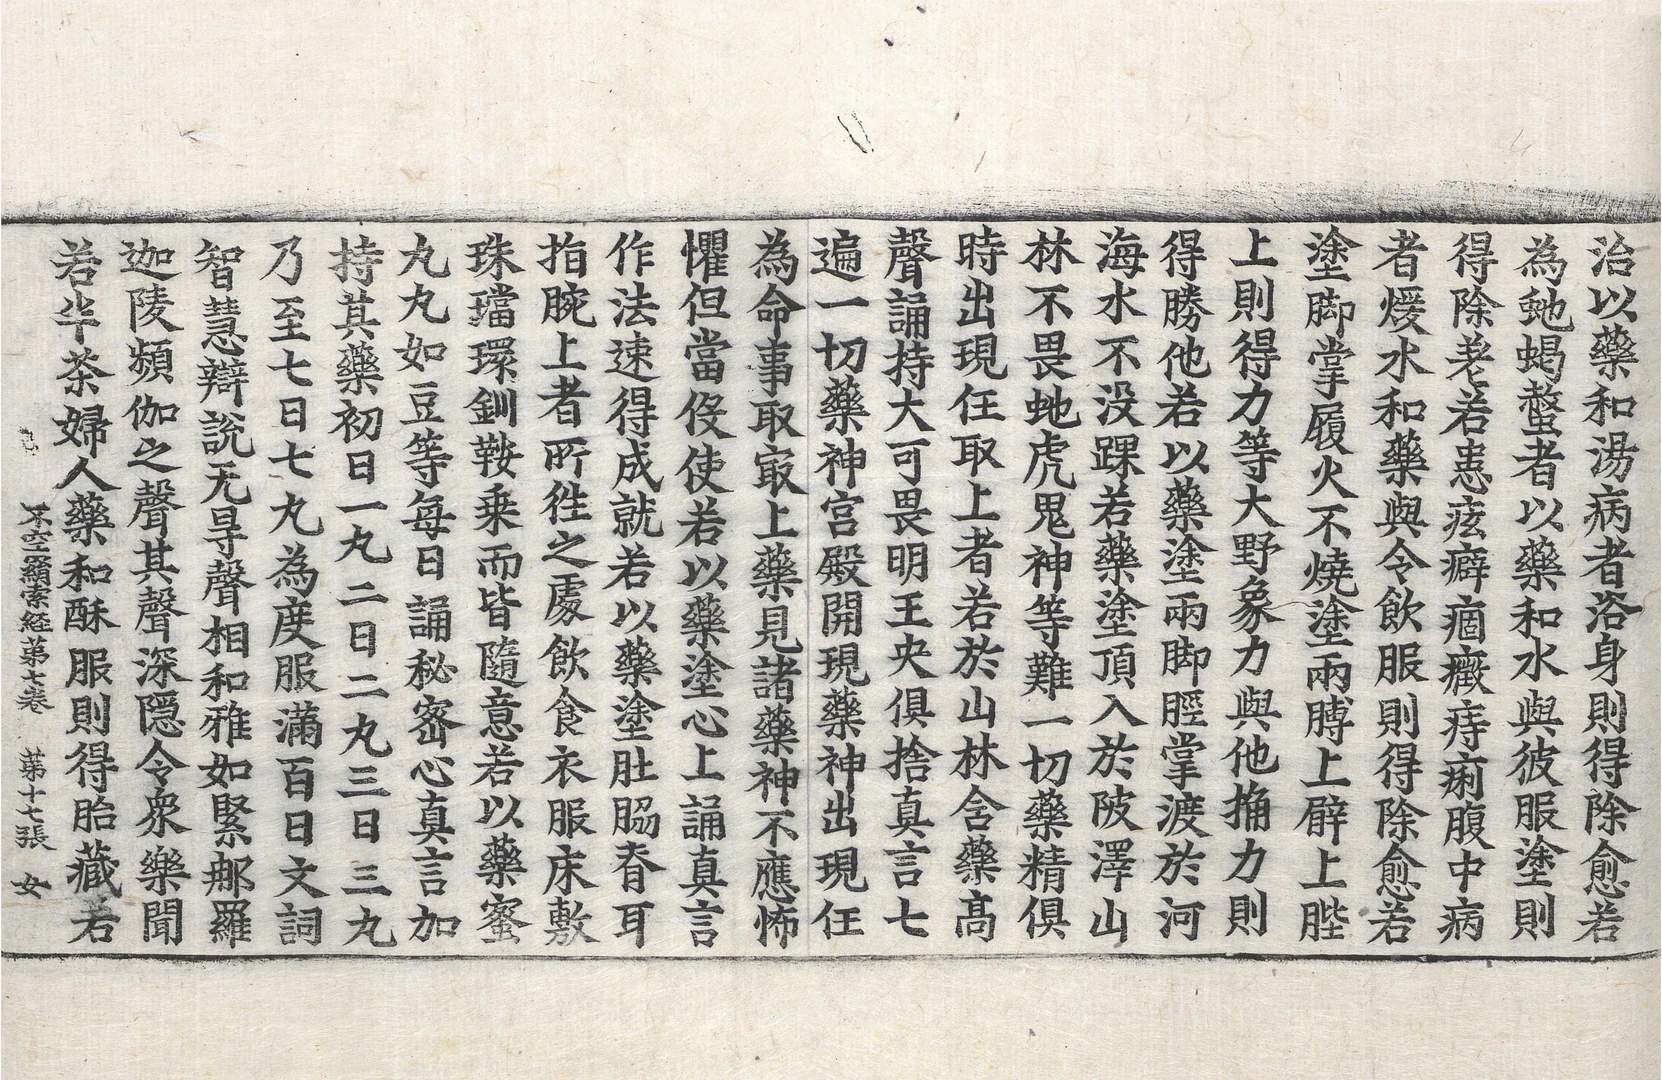 治以藥和湯病者浴身則得除愈若
為虵蝎螫者以藥和水與彼服塗則
得除差若患痃癖痼癥痔痢腹中病
者煖水和藥與令飲服則得除愈若
塗脚掌履火不燒塗兩膊上臂上䏶
上則得力等大野象力與他捔力則
得勝他若以藥塗兩脚脛掌渡於河
海水不没踝若藥塗頂入於陂澤山
林不畏虵虎鬼神等難一切藥精俱
時出現任取上者若於山林含藥高
聲誦持大可畏明王央俱捨真言七
遍一切藥神宮殿開現藥神出現任
為命事取㝡上藥見諸藥神不應怖
懼但當伇使若以藥塗心上誦真言
作法速得成就若以藥塗肚脇脊耳
指腕上者所徃之處飲食衣服床敷
珠璫環釧鞍乗而皆隨意若以藥蜜
丸丸如豆等每日誦秘密心真言加
持其藥初日一丸二日二丸三日三丸
乃至七日七丸為度服滿百日文詞
智慧辯說无㝵聲相和雅如緊那羅
迦陵頻伽之聲其聲深隱令衆樂聞
若半茶婦人藥和酥服則得胎藏若
不空羂索経第七卷 第十七張 女